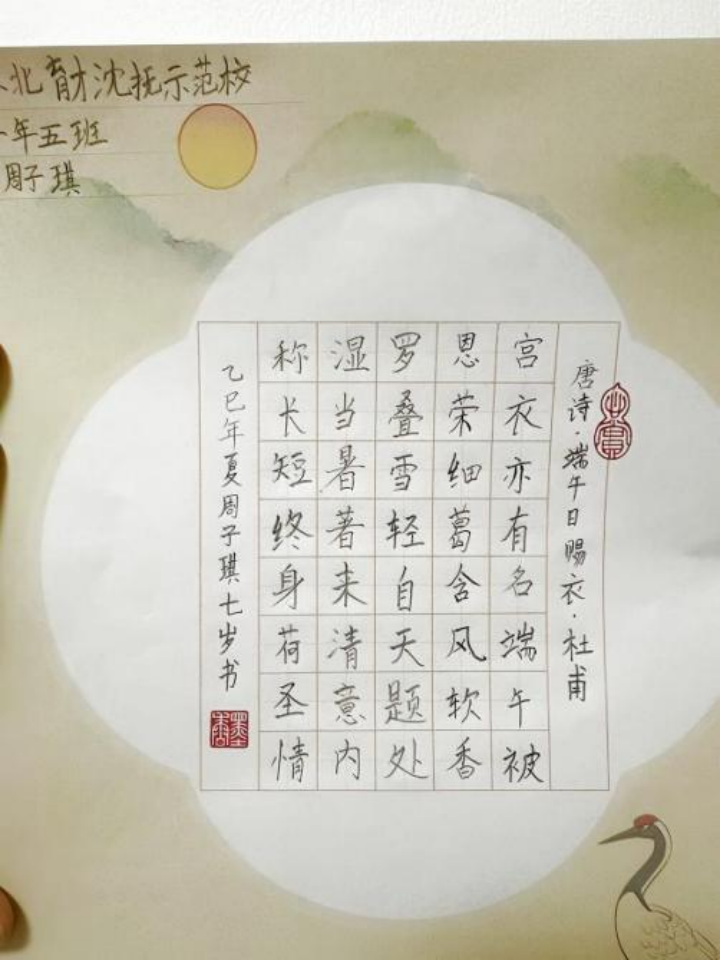 北育才沈抚示范校
年五班
周子琪
唐诗·端午日赐衣·杜甫
宫衣亦有名端午被
恩荣细葛含风软香
罗叠雪轻自天题处
湿当暑著来清意内
称长短终身荷圣情
乙巳年夏周子琪七岁书